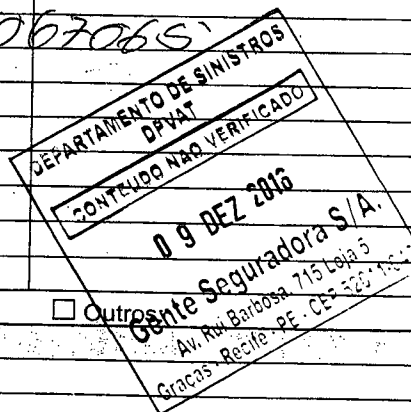 DEPARTAMENTO DE SINISTROS
DPVAT
CONTEUDO NAO VERIFICADO
09 DEZ 2016
Gente Seguradora S/A.
Av. Rui Barbosa, 715 Loja 5
Graças - Recife - PE - CEP
Outros